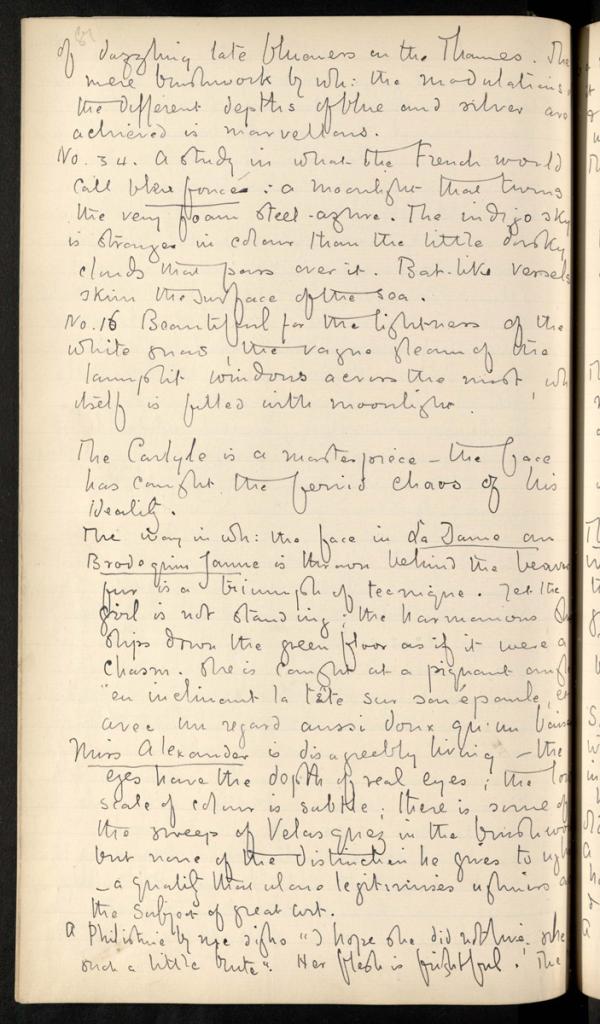 of dazzling late blueness on the Thames. The
mere brushwork by wh: the modulations,
the different depths of blue and silver are
achieved is marvellous.
No. 34. A study in what the French would
call bleu foncé : a moonlight that turns
the very foam steel-azure. The indigo sky
is stronger in colour than the little dusky
clouds that pass over it. Bat-like vessels
skim the surface of the sea.
No. 16 Beautiful for the lightness of the
white snow, the vague gleam of the
lamplit windows across the mist, wh
itself is filled with moonlight.
The Carlyle is a masterpiece – the face
has caught the fervid chaos of his
Ideality.
The way in wh: the face in La Dame au
Brodequin Jaune is thrown behind the
fur is a triumph of tecnique. Yet the
girl is not standing; the harmonious
slips down the green floor as if it were a
chasm. She is caught at a piquant
"en inclinant la tête sur son épaule, et
avec un regard aussi doux qu'un
Miss Alexander is disagreeably living – the
eyes have the depth of real eyes; the
scale of colour is subtle; there is some of
the sweep of Velasquez in the
but none of the distinction he gives to
– a quality that alone legitimises ugliness
the subject of great art.
A Philistine by me sighs "I hope she did nothing. she
such a little brute". Her flesh is frightful! The